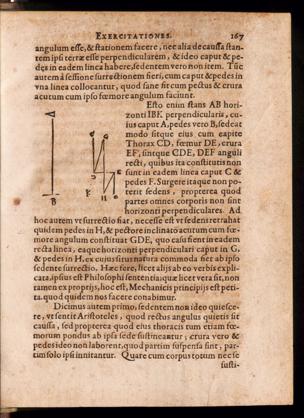 EXERCITATIONES. 167
angulum esse, & stationem facere, nec alia de causa stan-
tem ipsi terræ esse perpendicularem, & ideo caput & pe-
des in eadem linea habere, sedentem vero non item. Tūc
autem à sessione surrectionem fieri, cum caput & pedes in
vna linea collocantur, quod sane fit cum pectus & crura
acutum cum ipso fœmore angulum faciunt.
Esto enim stans AB hori-
zonti IBK perpendicularis, cu-
ius caput A, pedes vero B, sedeat
modo sitque eius cum capite
Thorax CD, fœmur DE, crura
EF, sintque CDE, DEF anguli
recti, quibus ita constitutis non
sunt in eadem linea caput C &
pedes F. Surgere itaque non po-
terit sedens, propterea quod
partes omnes corporis non sint
horizonti perpendiculares. Ad
hoc autem vt surrectio fiat, necesse est vt sedens retrahat
quidem pedes in H, & pectore inclinato acutum cum fœ-
more angulum constituat GDE, quo casu fient in eadem
recta linea, eaque horizonti perpendiculari caput in G,
& pedes in H, ex cuius situs natura commoda fiet ab ipso
sedente surrectio. Hæc fere, licet alijs ab eo verbis expli-
cata, ipsius est Philosophi sententia quæ licet vera sit, non
tamen ex proprijs, hoc est, Mechanicis principijs est peti-
ta. quod quidem nos facere conabimur.
Dicimus autem primo, sedentem non ideo quiesce-
re, vt sensit Aristoteles, quod rectus angulus quietis sit
causa, sed propterea quod eius thorax tum etiam fœ-
morum pondus ab ipsa sede sustineantur; crura vero &
pedes ideo non laborent, quod partim suspensa sint, par-
tim solo ipsi innitantur. Quare cum corpus totum nec se
susti-
B